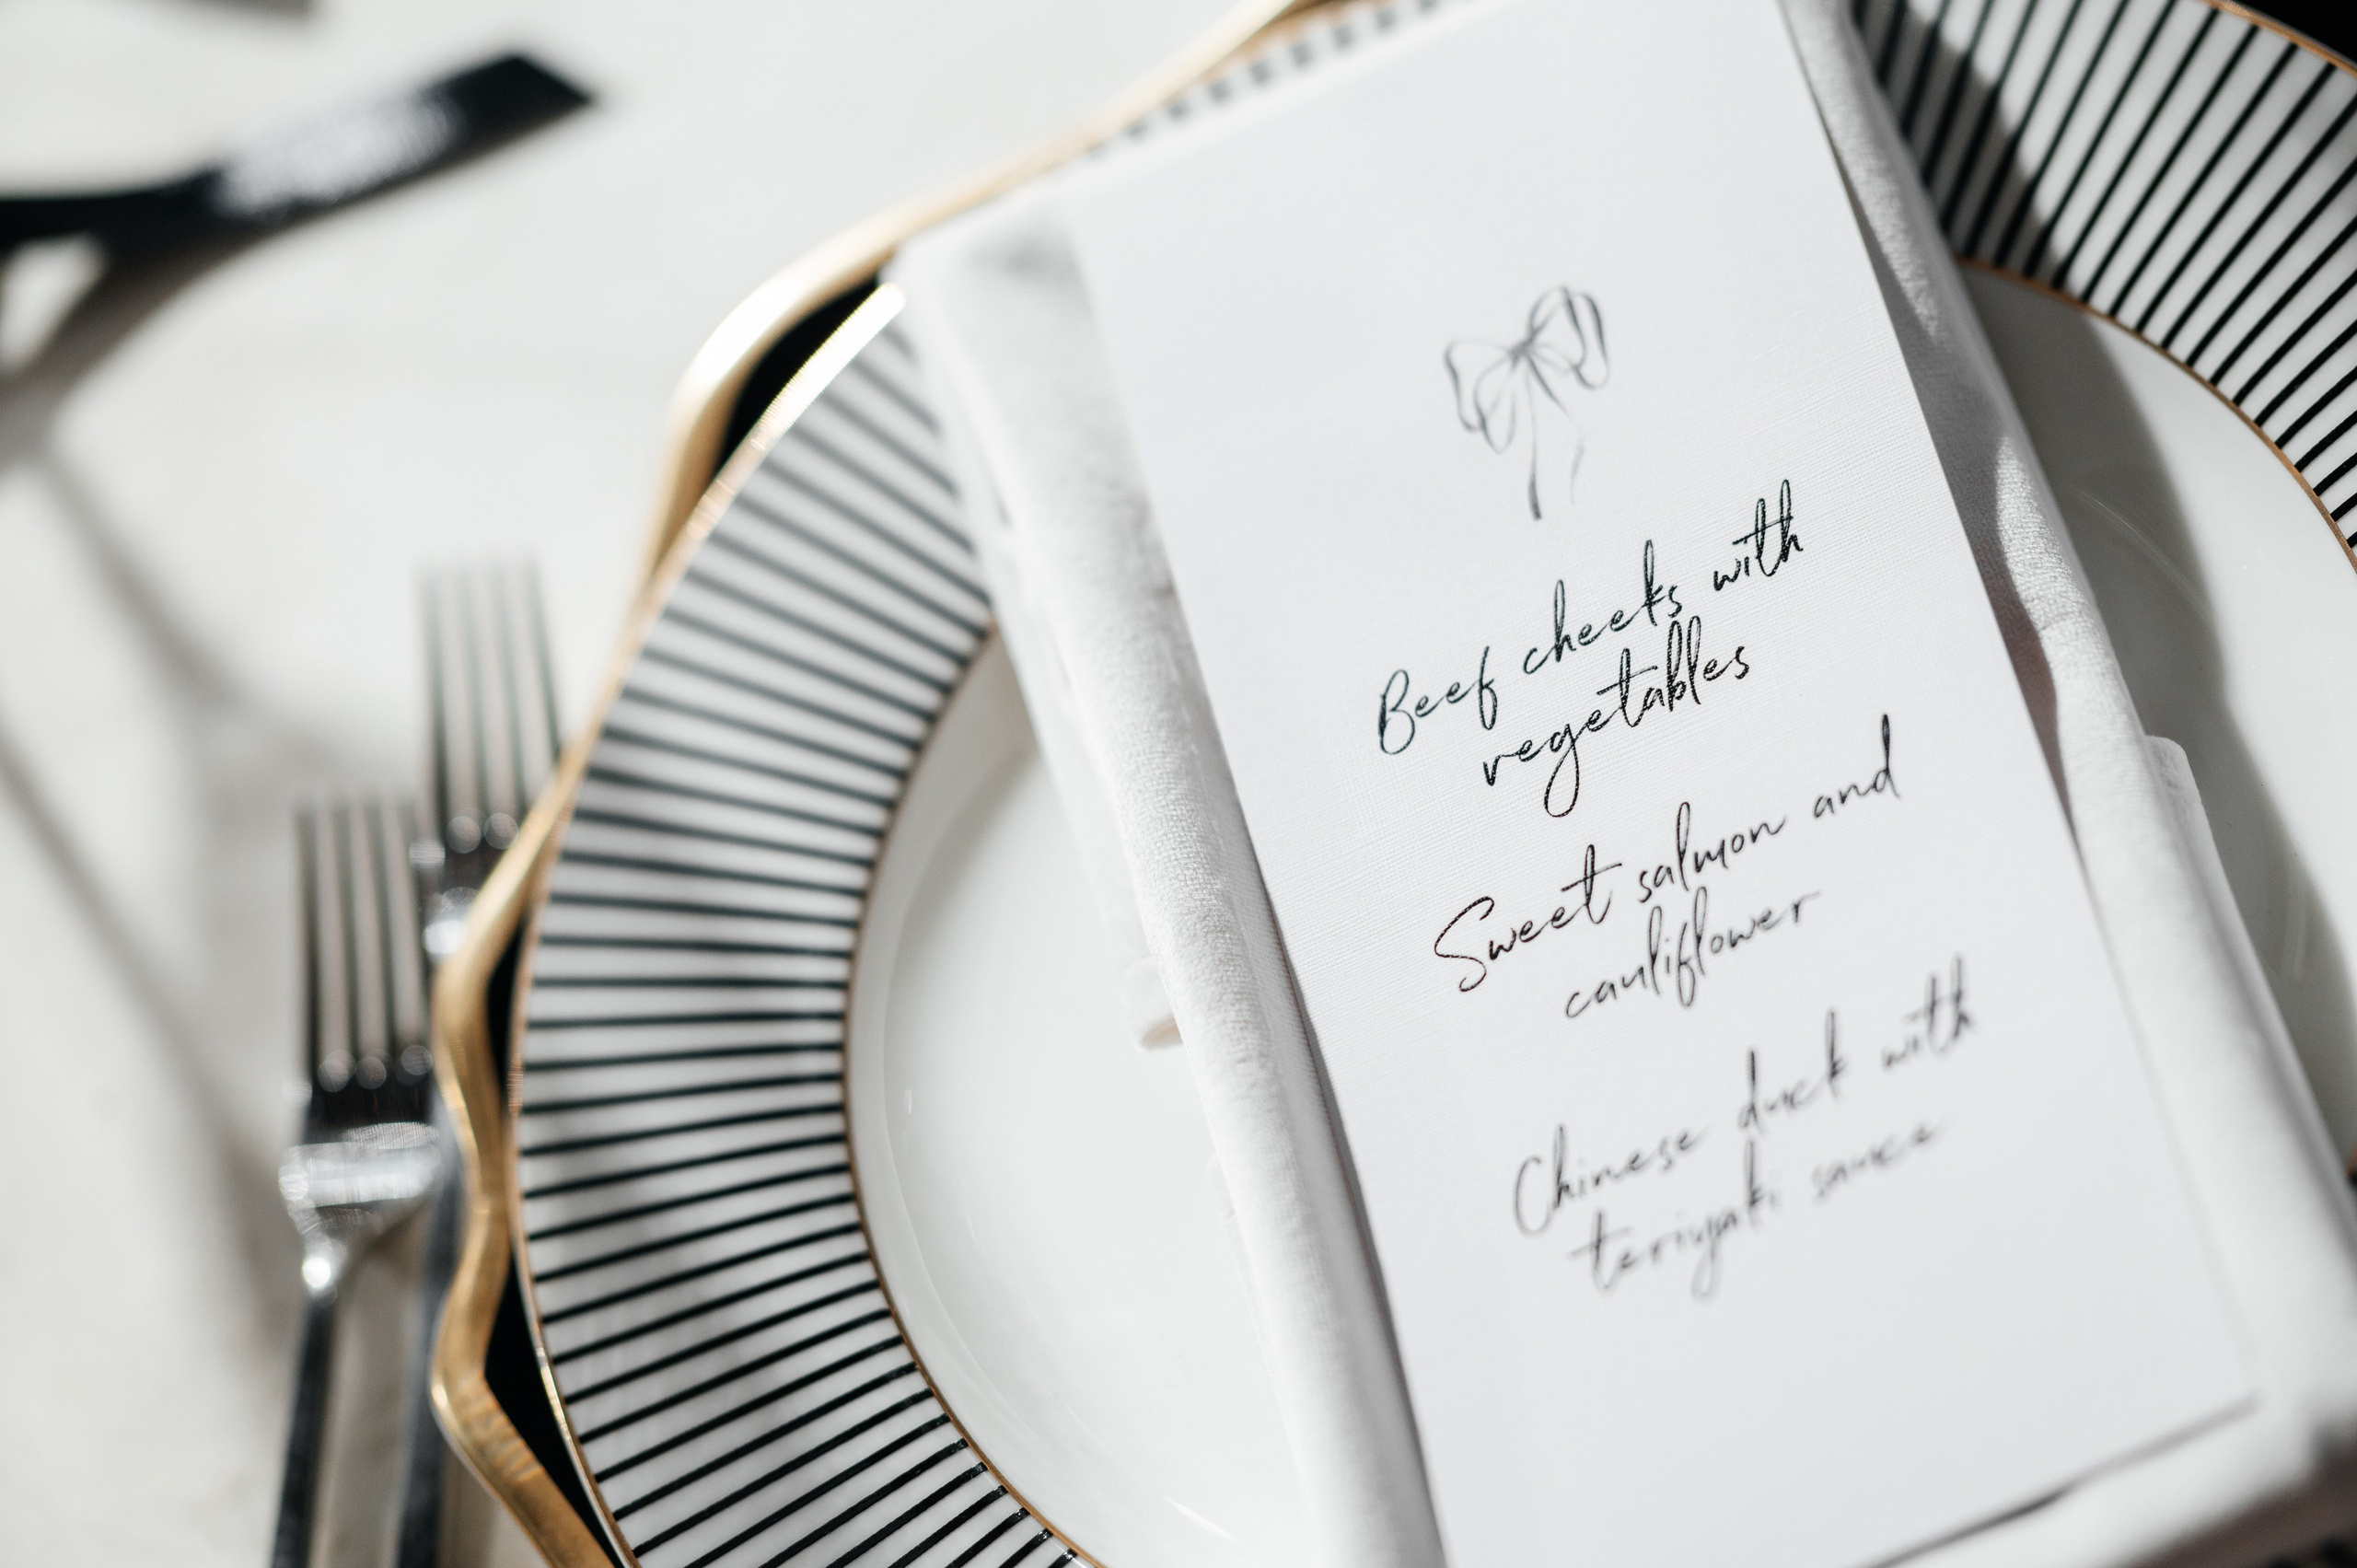 Beef cheeks with
vegetables
Sweet salmon and
cauliflower
Chinese duck with
teriyaki sauce